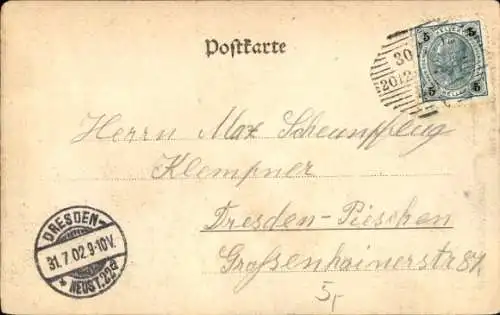 Postkarte
5 5
5 5
30
Herrn Max Scheunpflug
Klempner
Dresden-Pieschen
Großenhainerstr 87.
DRESDEN-
31.7.02.9-10V.
* NEUST.22a
5,-